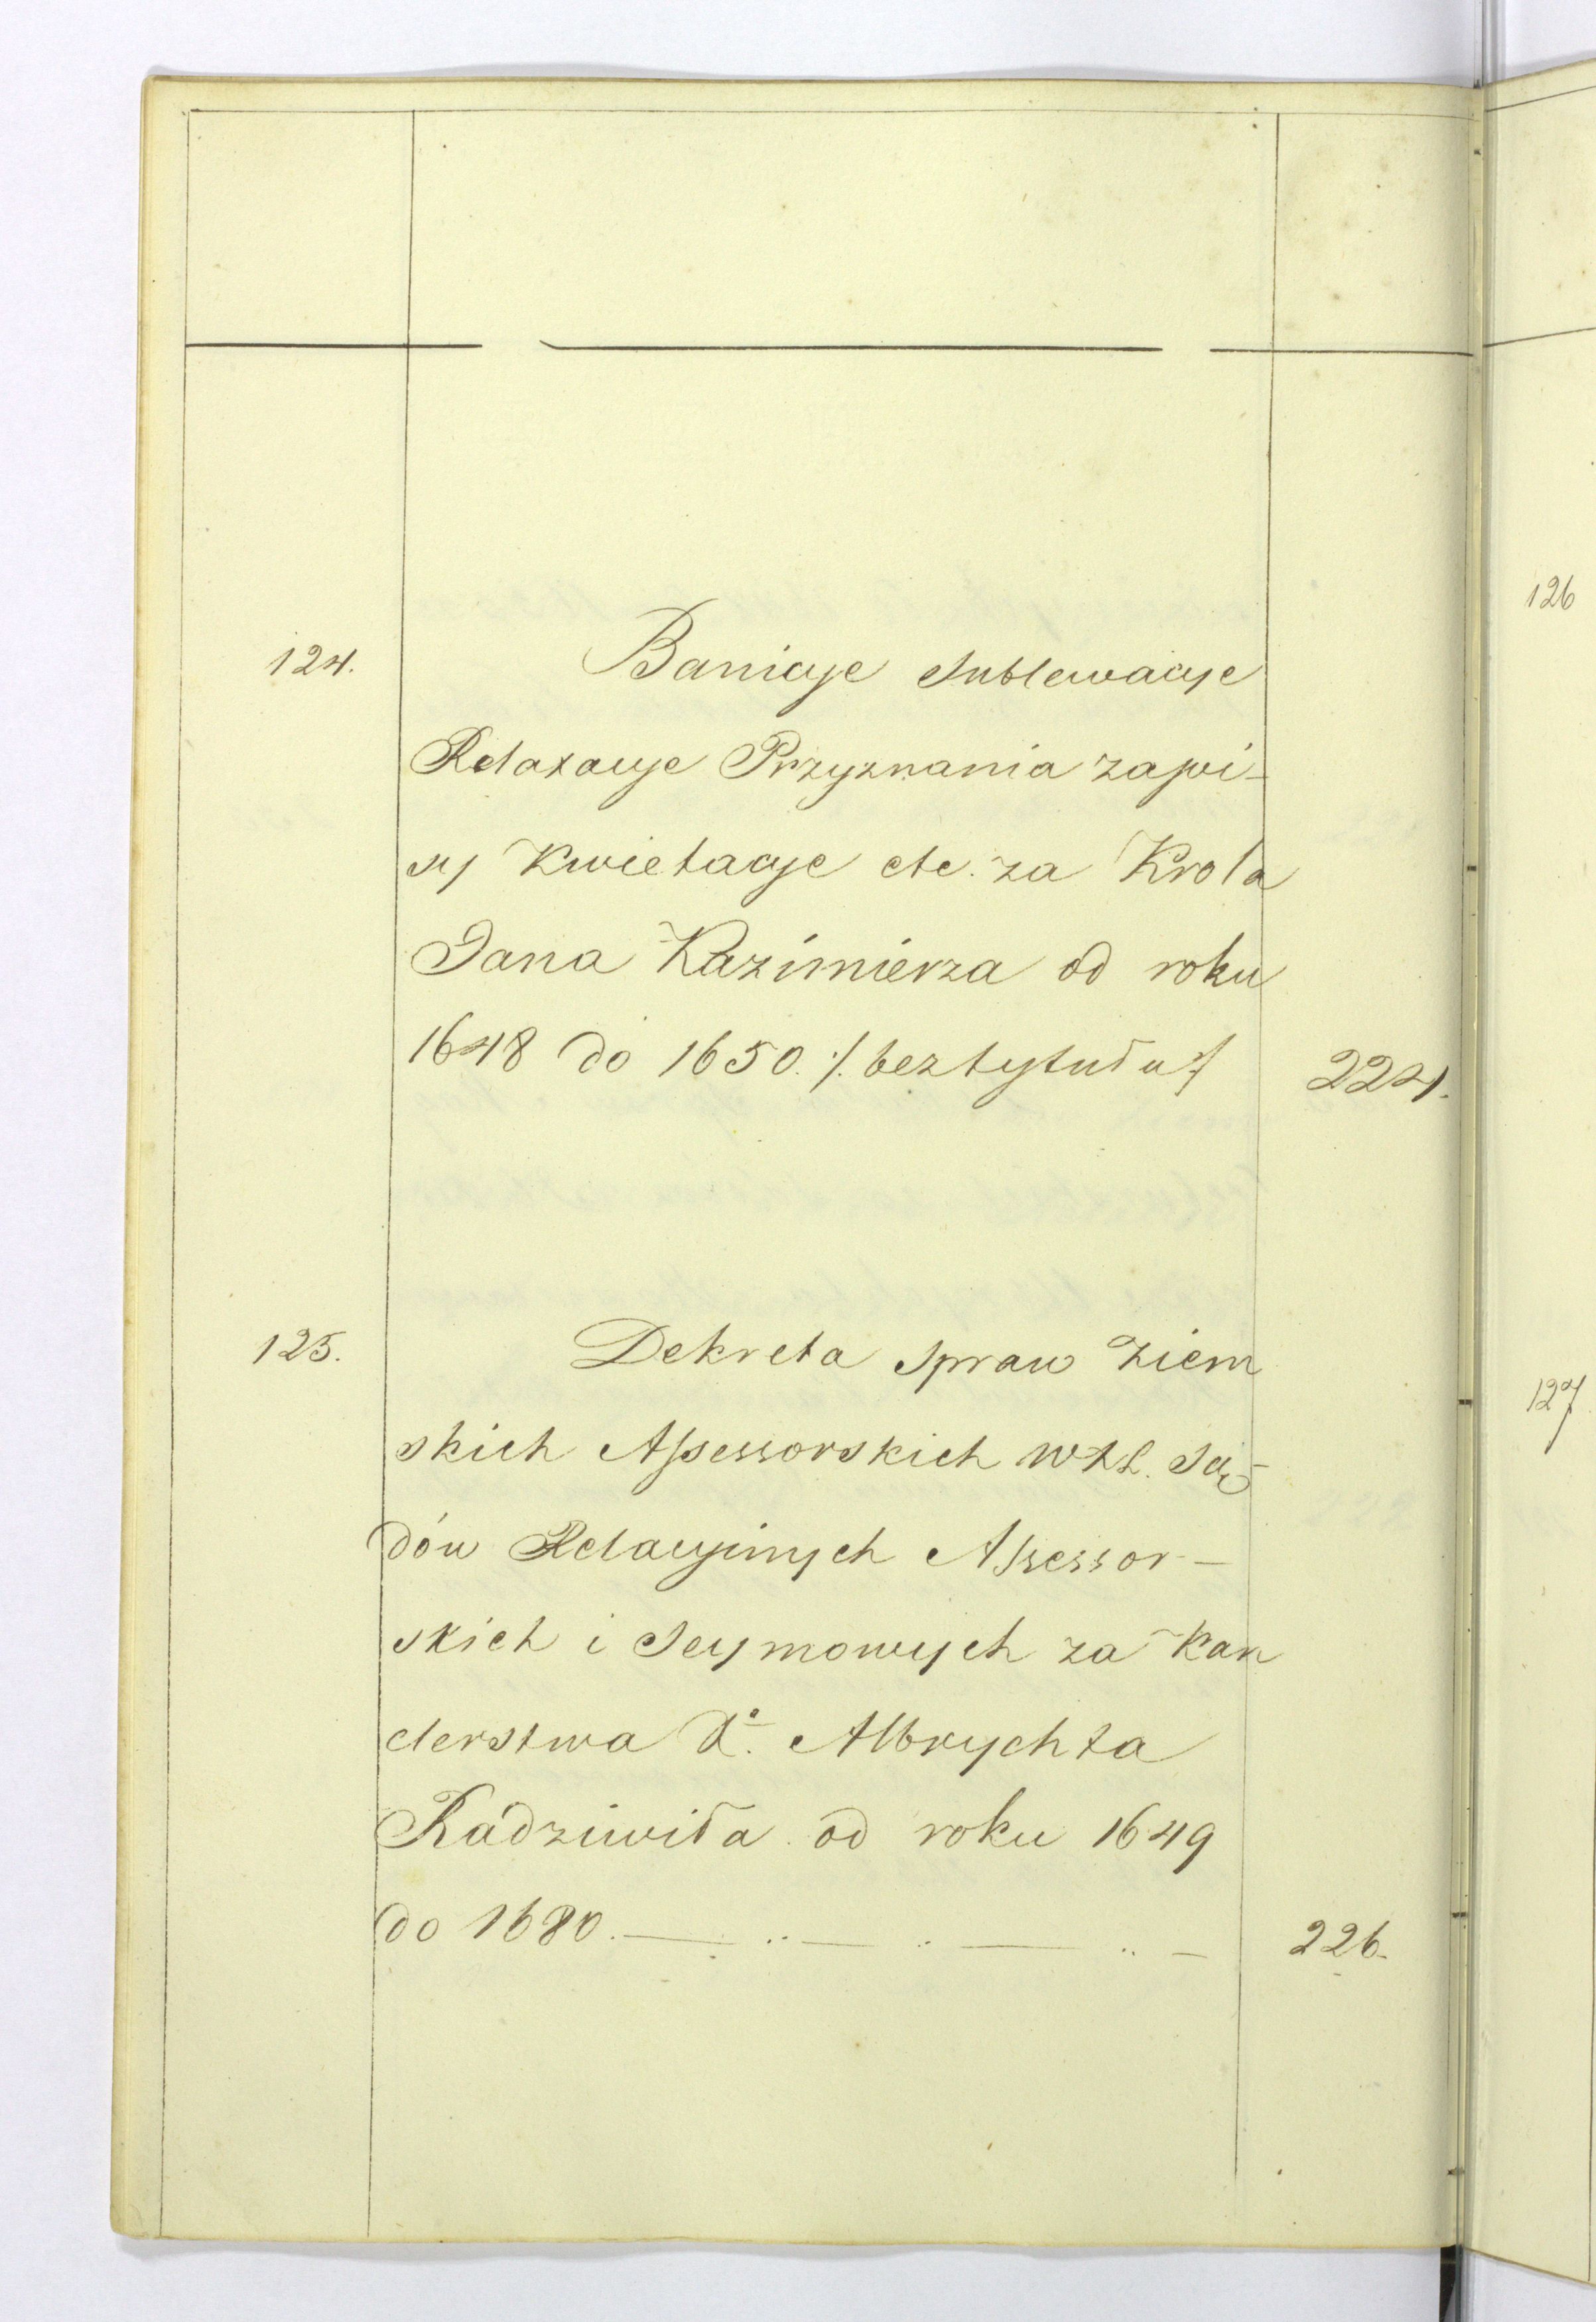 124. Banicye Sublewacye
Relaxacye Przyznania zapi-
sy Kwietacye etc. za Krola
Jana Kazimierza od roku
1648 do 1650 ./. bez tytułu ./. 224.
125. Dekreta spraw Ziem
skich Assessorskich WXL. Są-
dów Relacyinych Assessor-
skich i Seymowych za Kan
clerstwa Xº. Albrychta
Radziwiła od roku 1649
do 1680. 226.
126
127